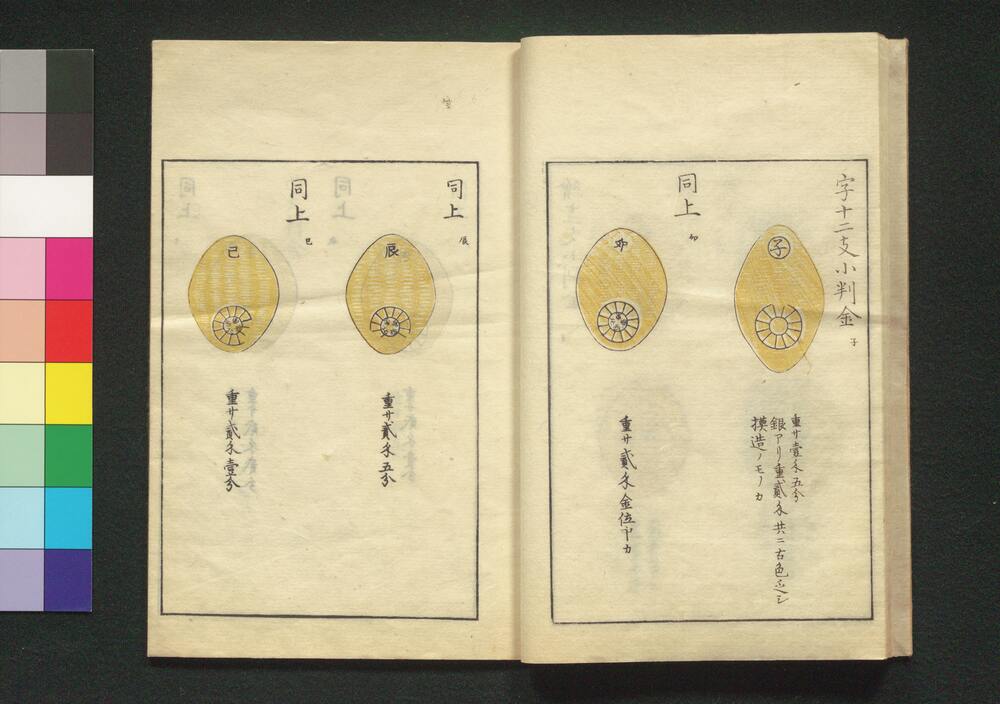 字十二支小判金 子
子
重サ壹匁五分
銀アリ重貳匁共ニ古色乏シ
摸造ノモノカ
同上 卯
卯
重サ貳匁金位中カ
同上 辰
辰
重サ貳匁五分
同上 巳
巳
重サ貳匁壹分